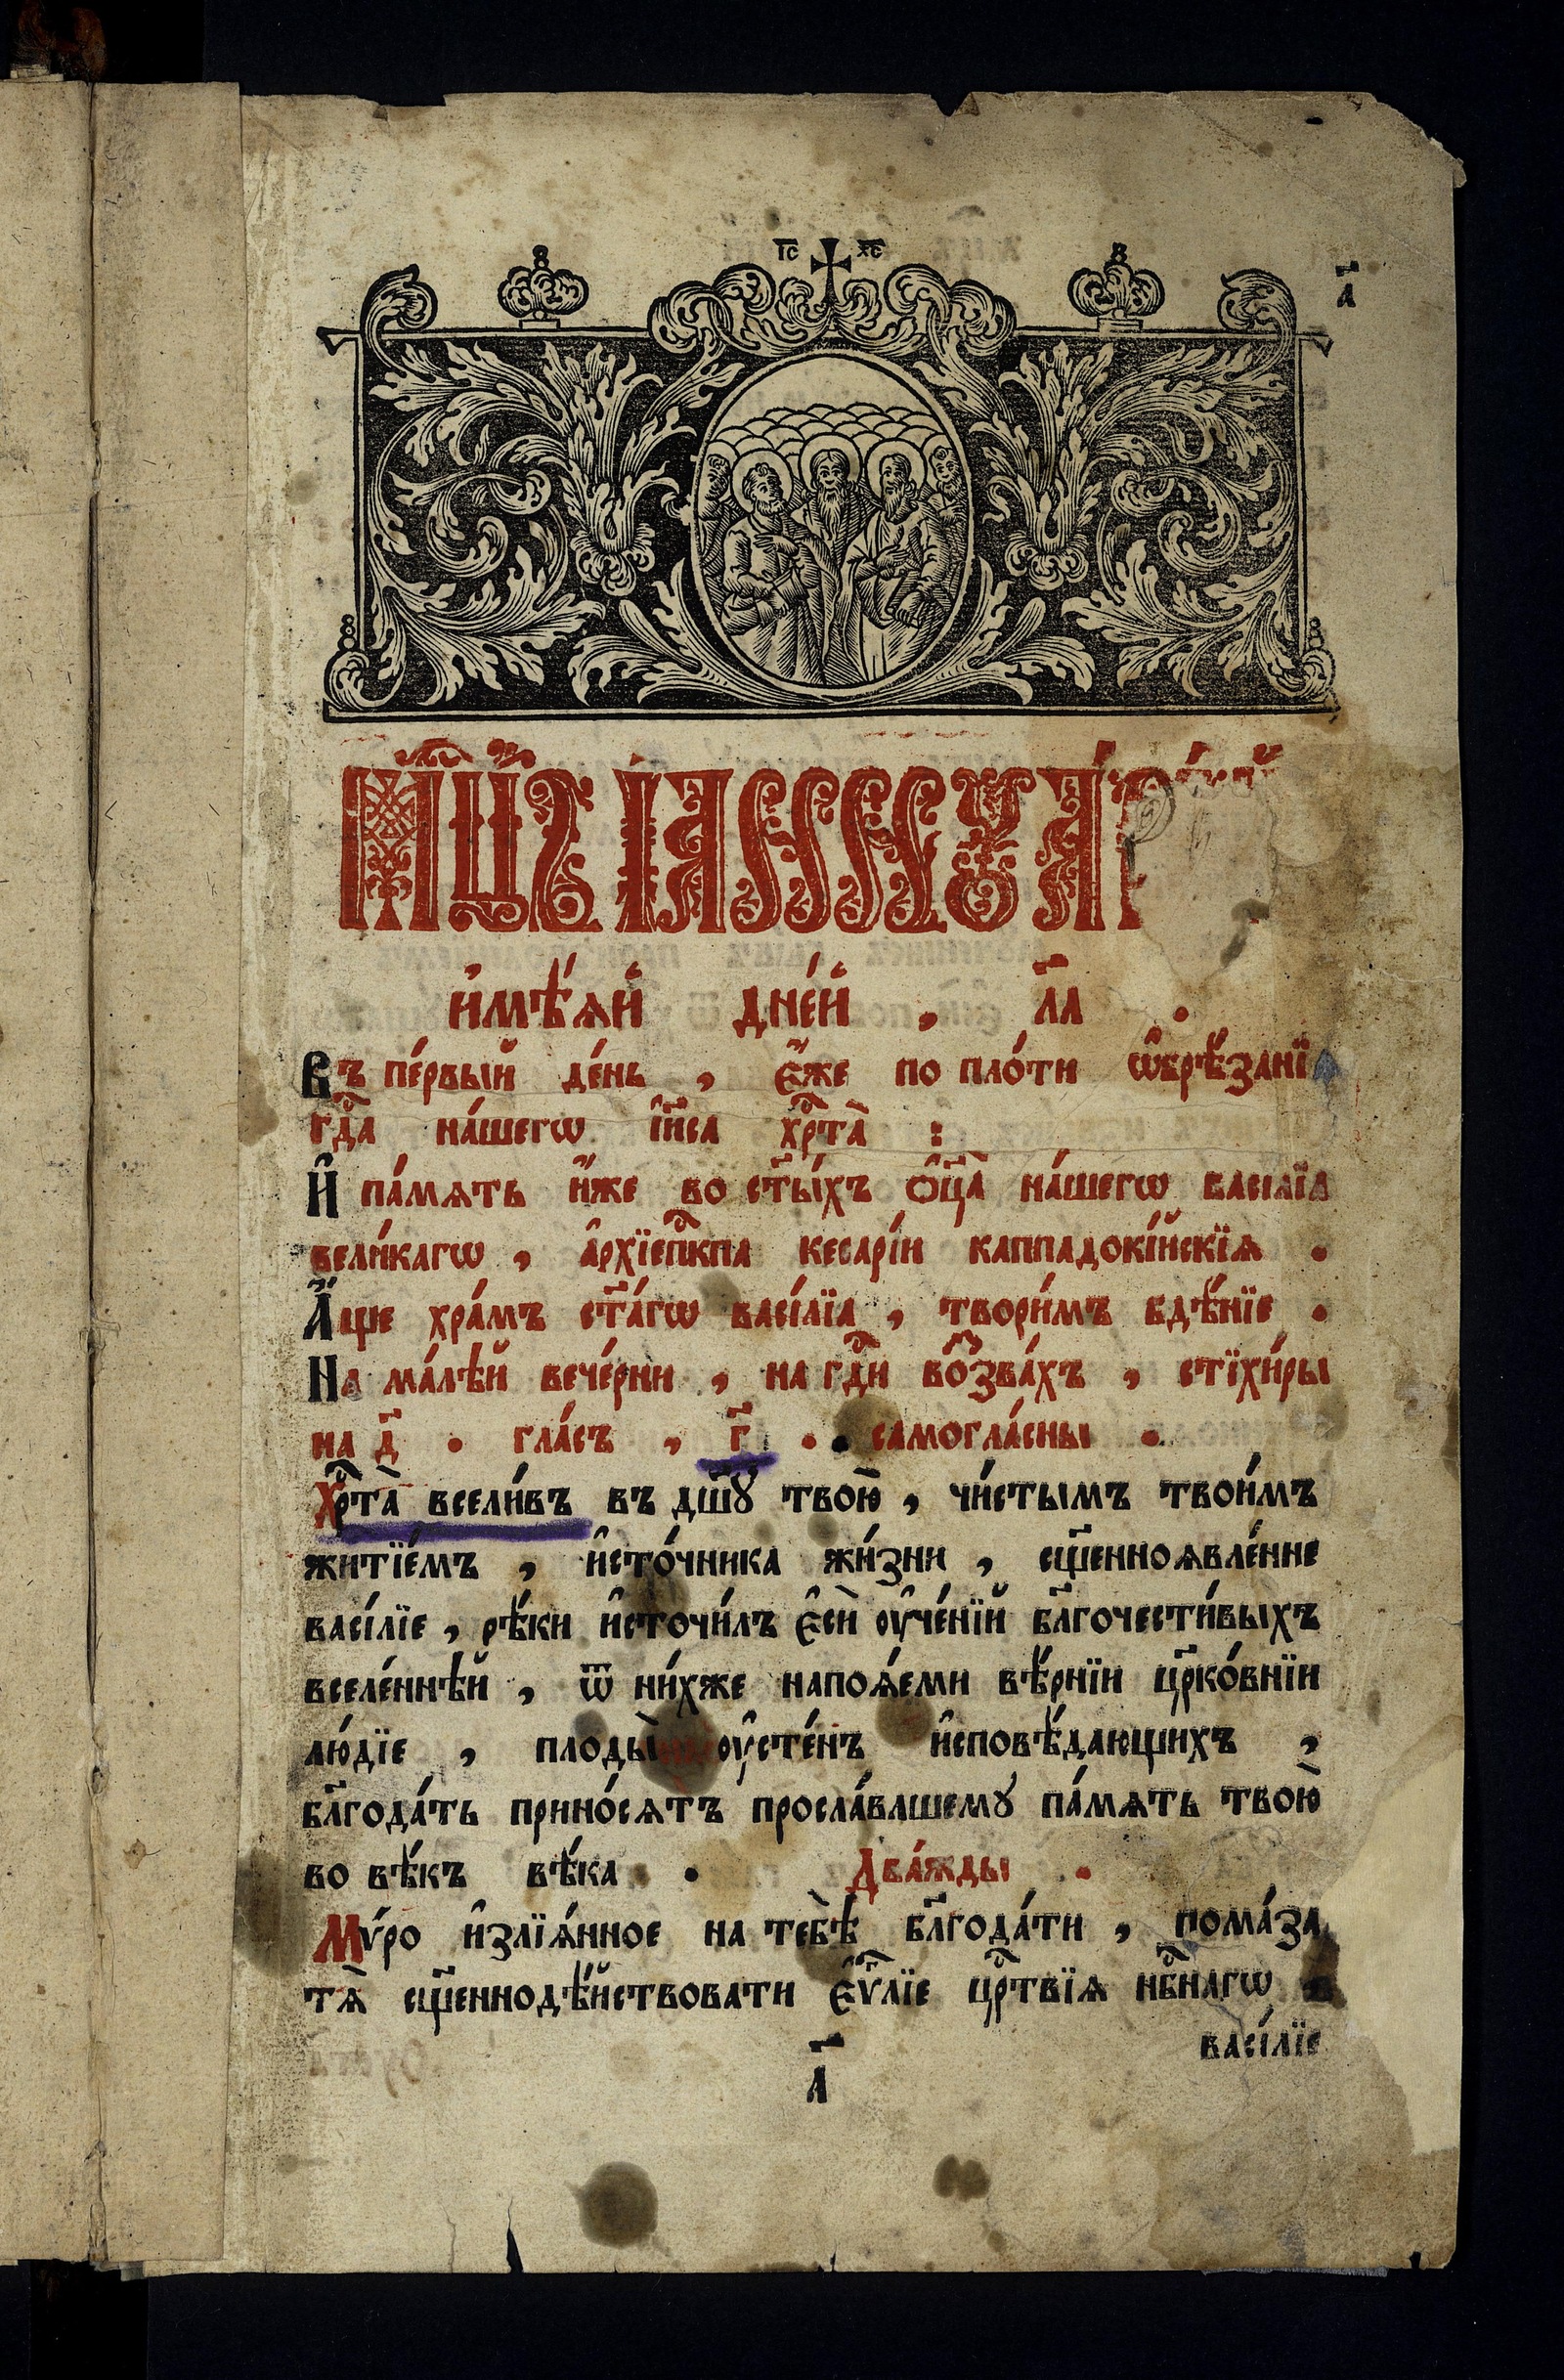 І҃С Х҃С
а҃
Мц҃ъ іаннꙋар
и҆мѣ́ѧй дне́й , л҃а .
Въ пе́рвый де́нь , є҆́же по пло́ти ѡ҆брѣ́занїе
гдⷭ҇а на́шегѡ і҆и҃са хрⷭ҇та̀ :
И҆ па́мѧть и҆́же во ст҃ы́хъ ѻ҆ц҃а̀ на́шегѡ васі́лїа
вели́кагѡ , а҆рхїепⷭ҇кпа кесарі́и каппадокі́йскїѧ .
А҆́ще хра́мъ ст҃а́гѡ васі́лїа , твори́мъ бдѣ́нїе .
На ма́лѣй вече́рни , на гдⷭ҇и во́ззва́хъ , стїхи́ры
на д҃ . гла́съ , г҃ . самогла́сны .
Хрⷭ҇та̀ всели́въ въ дш҃ꙋ̀ твою̀ , чи́стымъ твои́мъ
житїе́мъ , и҆сто́чника жи́зни , сщ҃енноѧвле́нне
васі́лїе , рѣ́ки и҆сточи́лъ є҆сѝ ᲂу҆че́нїй бл҃гочести́выхъ
вселе́ннѣй , ѿ ни́хже напоѧ́еми вѣ́рнїи цр҃ко́внїи
лю́дїе , плоды̀ ᲂу҆сте́нъ и҆сповѣ́дающихъ ,
бл҃года́ть прино́сѧтъ просла́вльшемꙋ па́мѧть твою̀
во вѣ́къ вѣ́ка . Два́жды .
Мѵ́ро и҆злїѧ́нное на тебѣ̀ бл҃года́ти , пома́за
тѧ̀ сщ҃еннодѣ́йствовати є҆ѵⷢ҇лїе црⷭ҇твїѧ нбⷭ҇нагѡ
васі́лїе
а҃